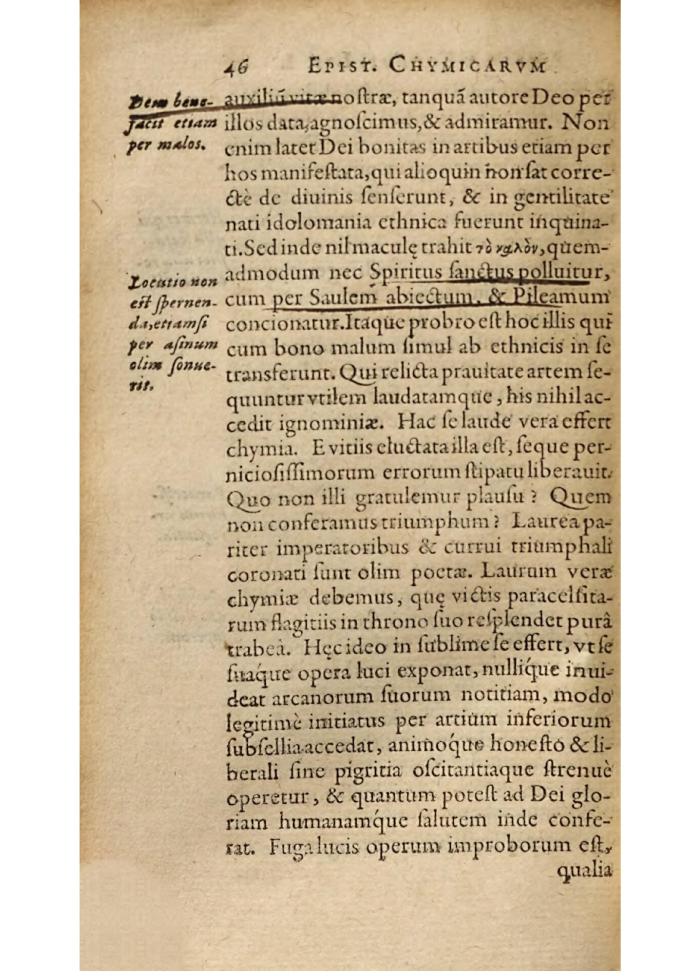 46 EPIST. CHYMICARVM
Deus bene-
facit etiam
per malos.
auxiliũ vitæ nostræ, tanquã autore Deo per
illos data, agnoscimus, & admiramur. Non
enim latet Dei bonitas in artibus etiam per
hos manifestata, qui alioquin non sat corre-
ctè de diuinis senserunt, & in gentilitate
nati idolomania ethnica fuerunt inquina-
ti. Sed inde nil maculę trahit τὸ καλὸν, quem-
admodum nec Spiritus sanctus polluitur,
Locutio non
est spernen-
da, etiamsi
per asinum
olim sonue-
rit.
cum per Saulem abiectum, & Pileamum
concionatur. Itaque probro est hoc illis qui
cum bono malum simul ab ethnicis in se
transferunt. Qui relicta prauitate artem se-
quuntur vtilem laudatamque, his nihil ac-
cedit ignominiæ. Hac se laude vera effert
chymia. E vitiis eluctata illa est, seque per-
niciosissimorum errorum stipatu liberauit.
Quo non illi gratulemur plausu? Quem
non conferamus triumphum? Laurea pa-
riter imperatoribus & currui triumphali
coronati sunt olim poetæ. Laurum veræ
chymiæ debemus, quę victis paracelsita-
rum flagitiis in throno suo resplendet purâ
trabeâ. Hęc ideo in sublime se effert, vt se
suáque opera luci exponat, nullíque inui-
deat arcanorum suorum notitiam, modo
legitimè initiatus per artium inferiorum
subsellia accedat, animóque honesto & li-
berali sine pigritia oscitantiaque strenuè
operetur, & quantum potest ad Dei glo-
riam humanamque salutem inde confe-
rat. Fuga lucis operum improborum est,
qualia